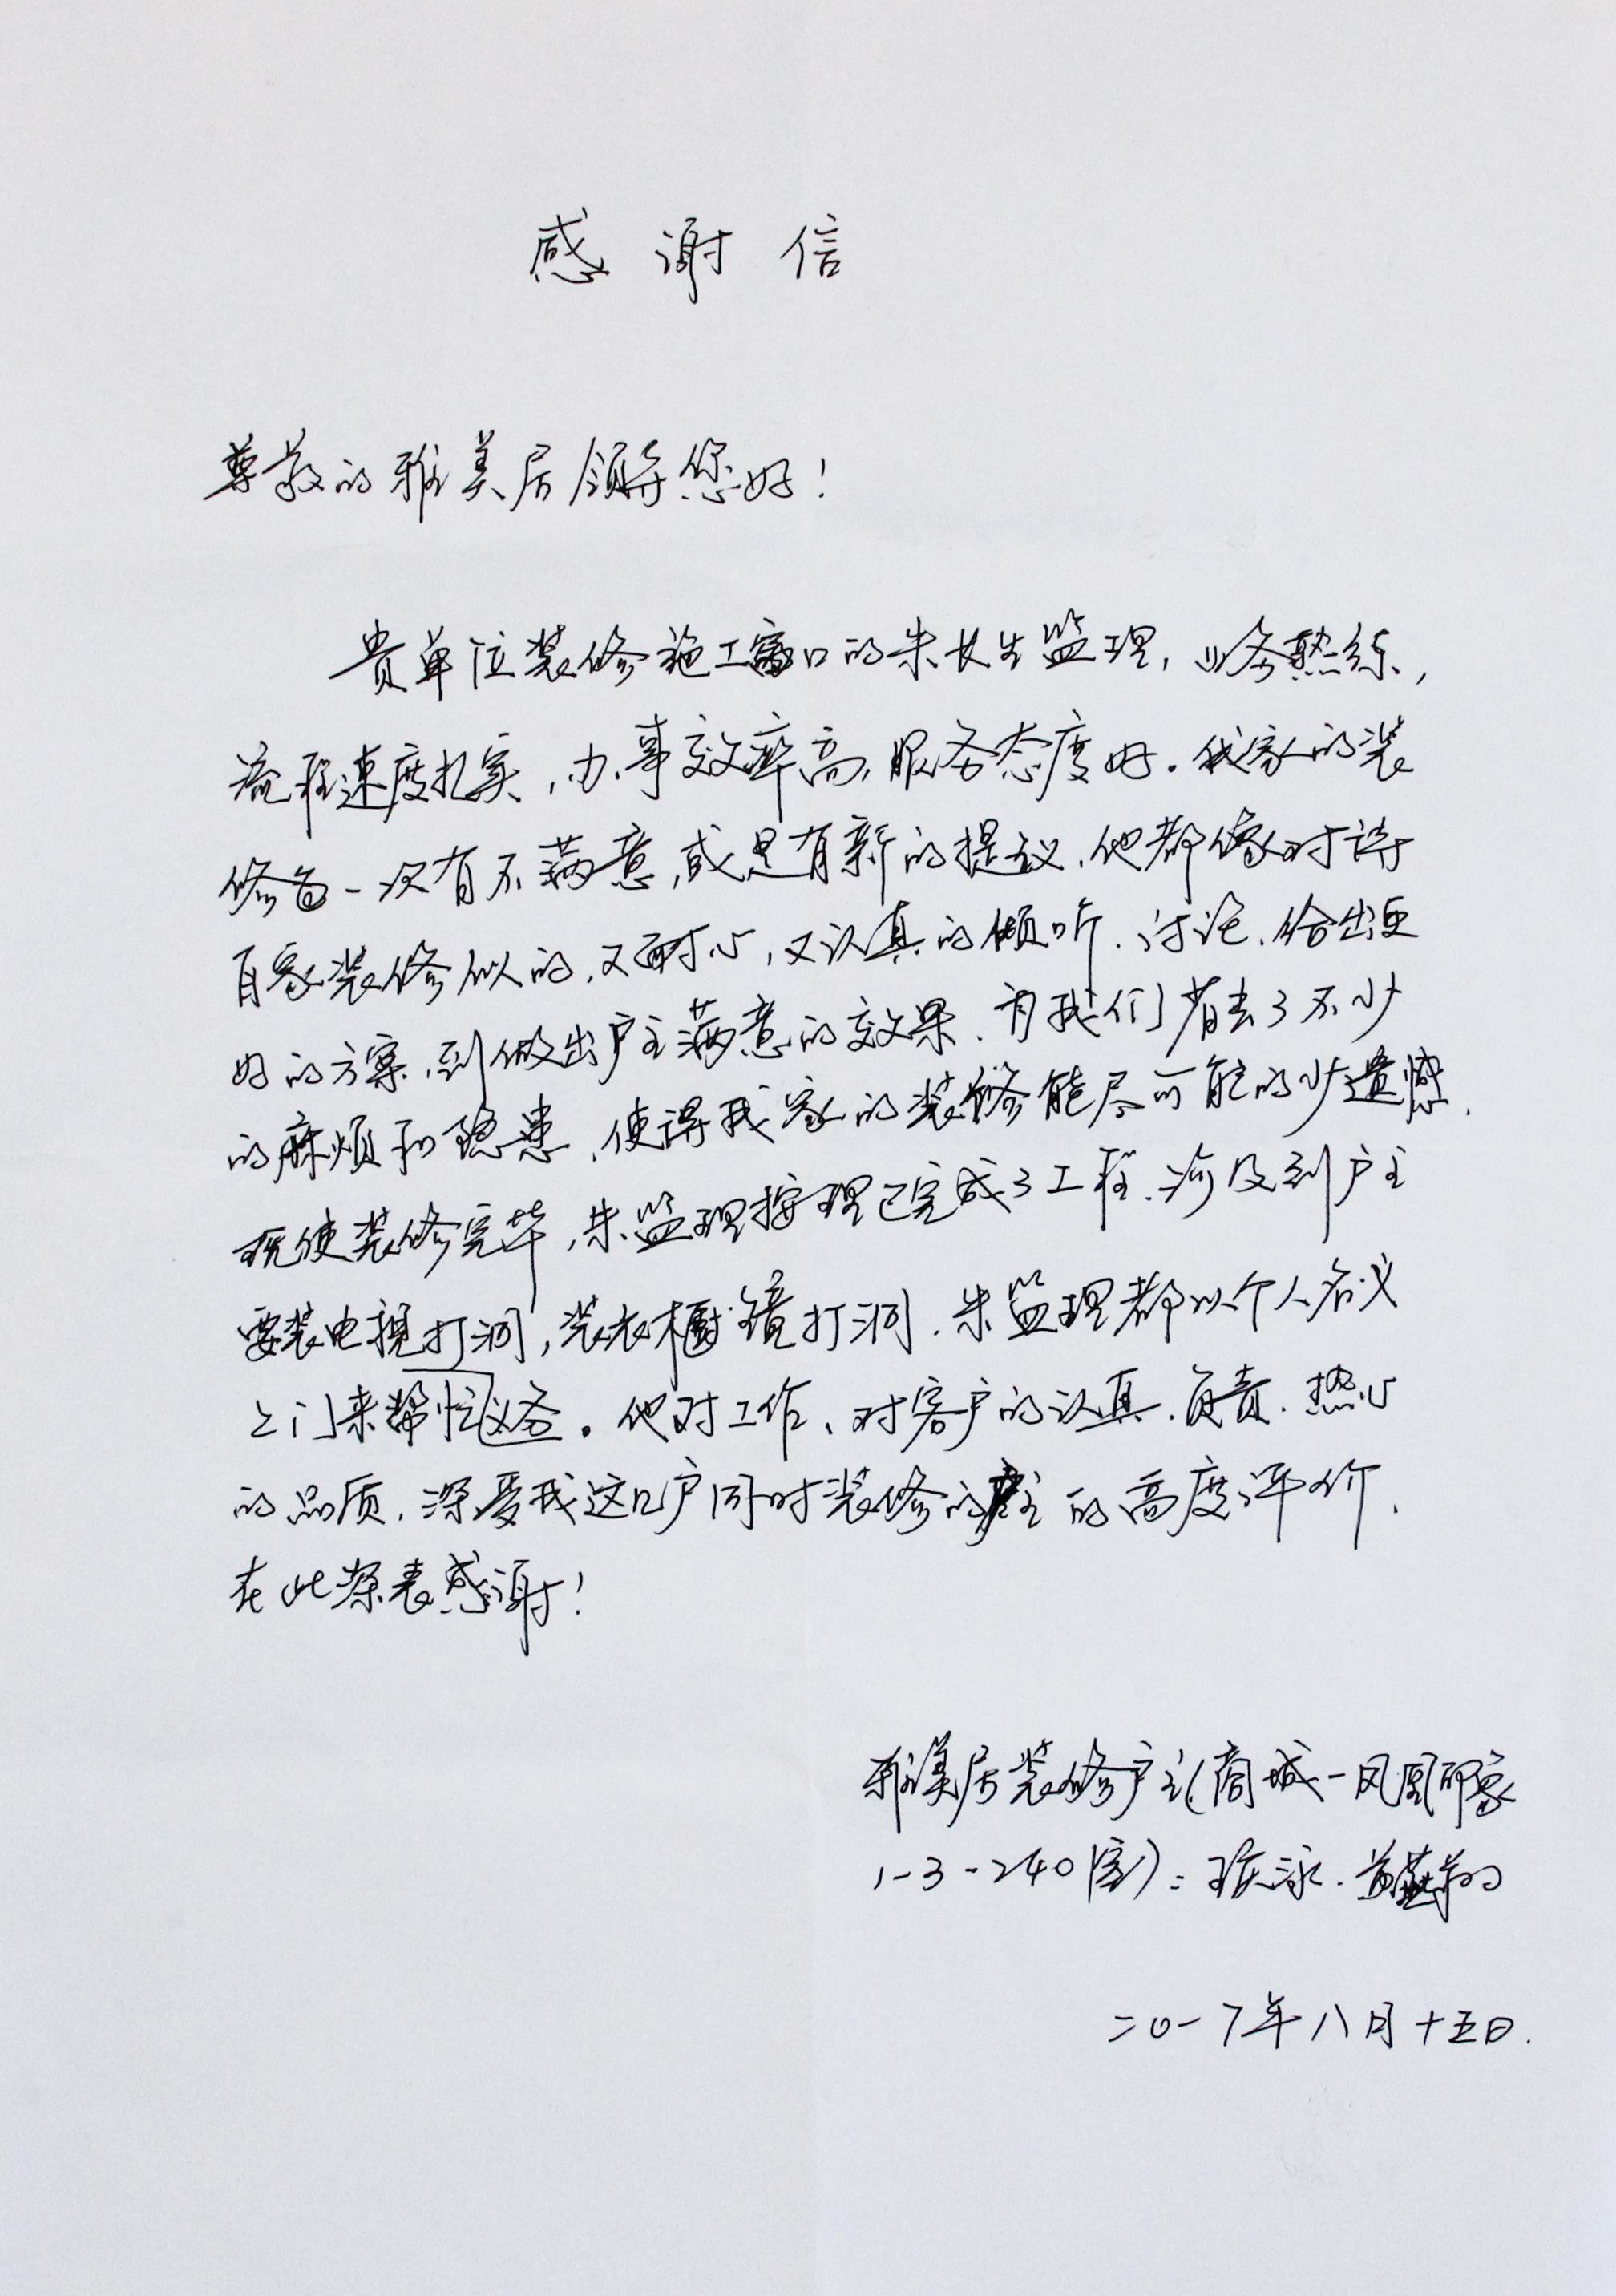 感谢信
尊敬的雅美居领导您好！
贵单位装修施工窗口的朱长生监理，业务熟练，
流程速度扎实，办事效率高，服务态度好。我家的装
修每一次有不满意，或是有新的提议，他都像对待
自家装修似的，又耐心，又认真的倾听、讨论、给出更
好的方案，到做出户主满意的效果，为我们省去了不少
的麻烦和隐患，使得我家的装修能尽可能的少遗憾。
既使装修完毕，朱监理按理已完成了工程，涉及到户主
要装电视打洞，装衣橱镜打洞，朱监理都以个人名义
上门来帮忙义务。他对工作、对客户的认真、负责、热心
的品质，深受我这几户同时装修的户主的高度评价，
在此深表感谢！
雅美居装修户主(商城-凤凰印象
1-3-240
二〇一七年八月十五日.